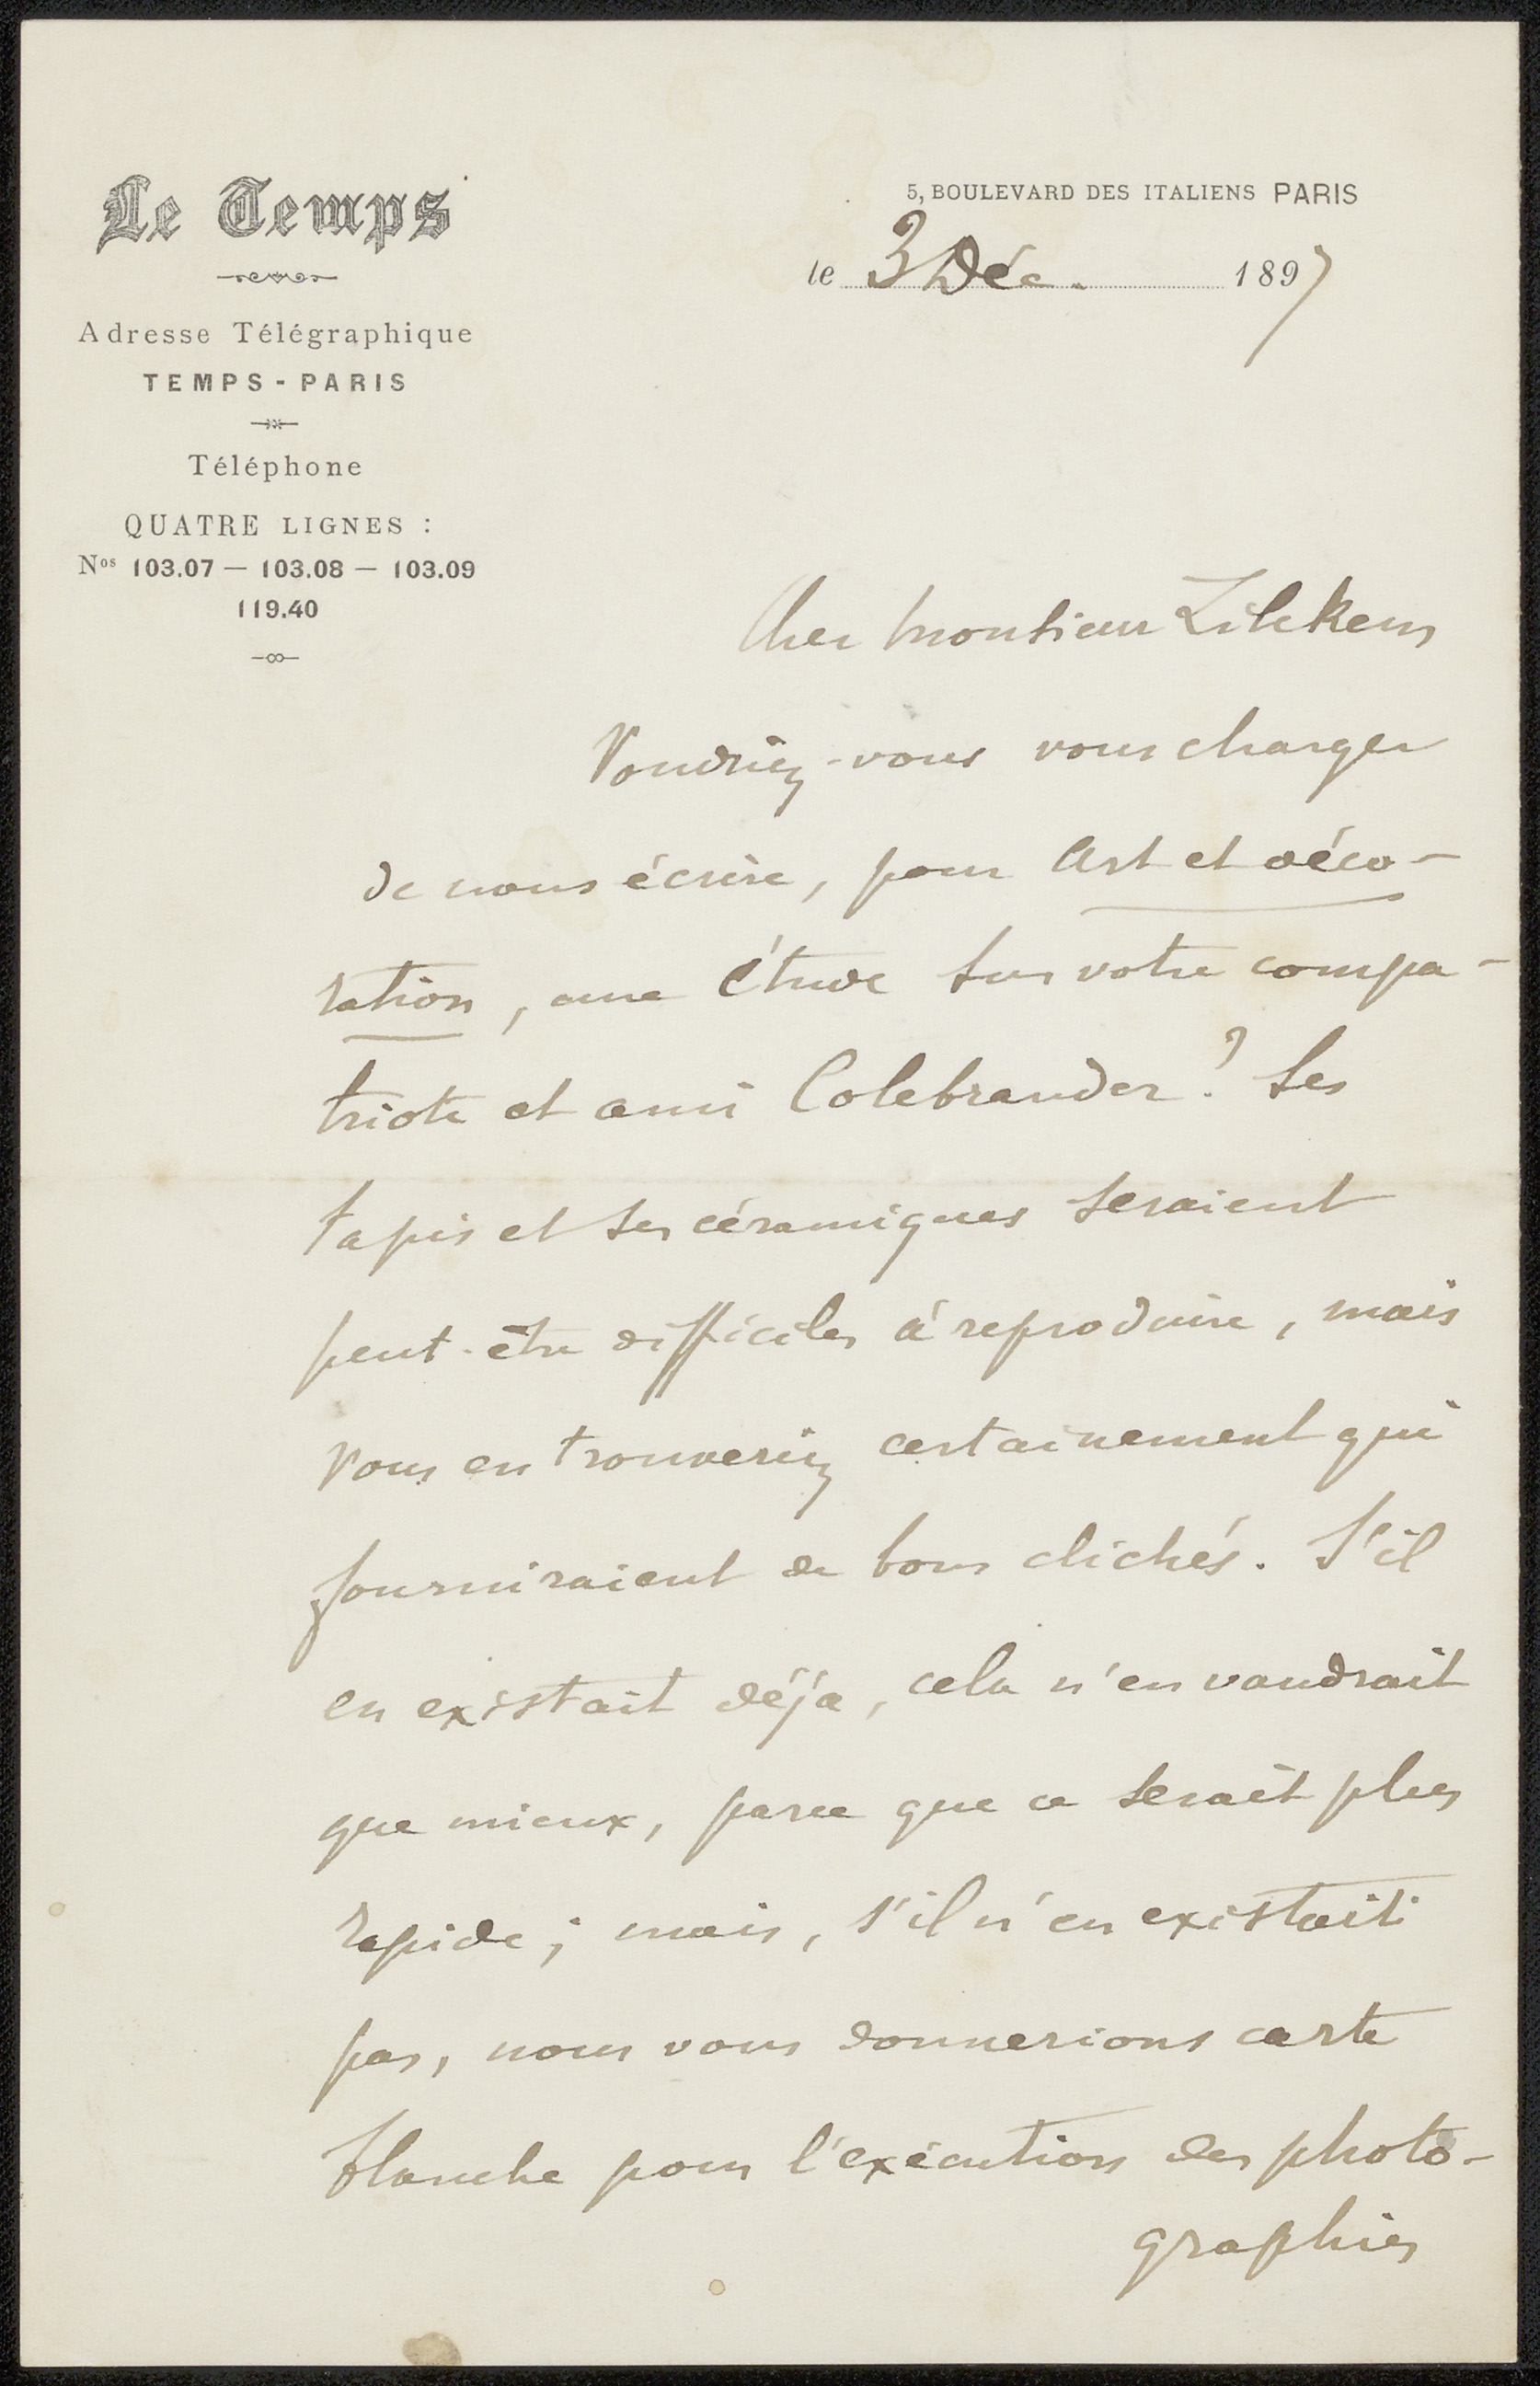 Le Temps
Adresse Télégraphique
TEMPS - PARIS
Téléphone
QUATRE LIGNES :
Nos 103.07 — 103.08 — 103.09
119.40
5, BOULEVARD DES ITALIENS PARIS
le 3 Déc. 1897
Cher Monsieur Zilckens
Voudriez-vous vous charger
de nous écrire, pour Art et déco-
ration, une étude sur votre compa-
triote et ami Colebrander ? Ses
tapis et ses céramiques seraient
peut-être difficiles à reproduire, mais
vous en trouveriez certainement qui
fourniraient de bons clichés. S'il
en existait déjà, cela n'en vaudrait
que mieux, parce que ce serait plus
rapide ; mais, s'il n'en existait
pas, nous vous donnerions carte
blanche pour l'exécution des photo-
graphies